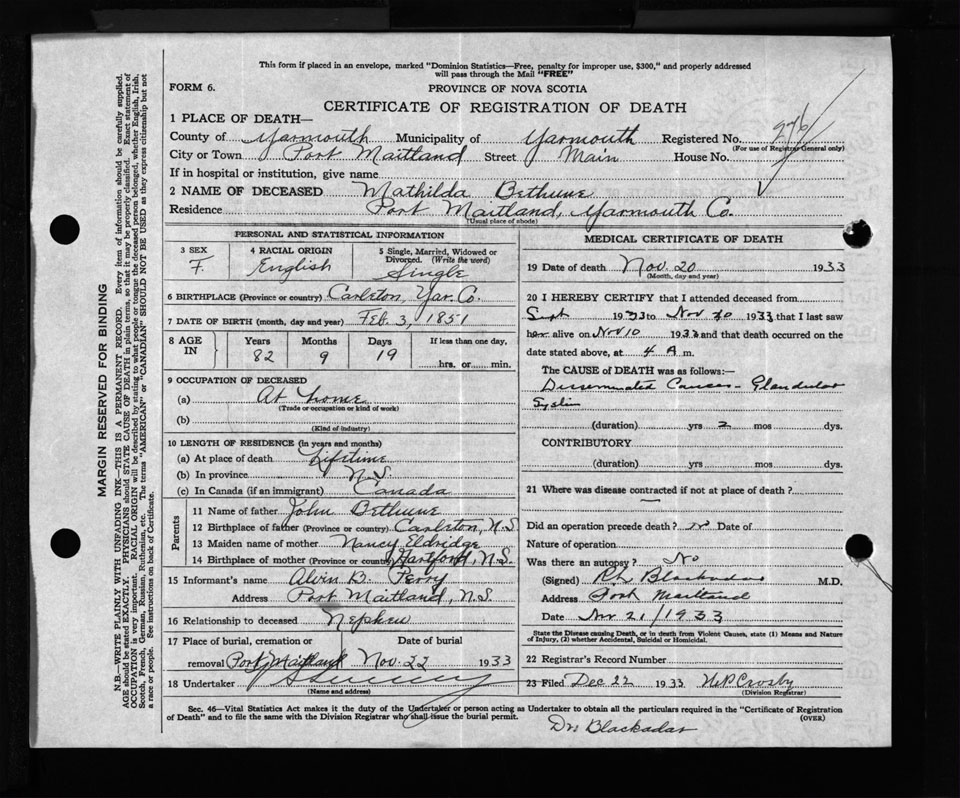 This form if placed in an envelope, marked "Dominion Statistics—Free, penalty for improper use, $300," and properly addressed
will pass through the Mail "FREE"
FORM 6.
PROVINCE OF NOVA SCOTIA
CERTIFICATE OF REGISTRATION OF DEATH
1 PLACE OF DEATH—
County of Yarmouth Municipality of Yarmouth Registered No. 276
(For use of Registrar General only)
City or Town Port Maitland Street Main House No.
If in hospital or institution, give name
2 NAME OF DECEASED Mathilda Bethune
Residence Port Maitland, Yarmouth Co.
(Usual place of abode)
PERSONAL AND STATISTICAL INFORMATION
3 SEX F. 4 RACIAL ORIGIN English 5 Single, Married, Widowed or Divorced. (Write the word) Single
6 BIRTHPLACE (Province or country) Carleton, Yar. Co.
7 DATE OF BIRTH (month, day and year) Feb. 3, 1851
8 AGE IN Years 82 Months 9 Days 19 If less than one day, hrs. or min.
9 OCCUPATION OF DECEASED
(a) At home
(Trade or occupation or kind of work)
(b)
(Kind of industry)
10 LENGTH OF RESIDENCE (in years and months)
(a) At place of death Lifetime
(b) In province N.S.
(c) In Canada (if an immigrant) Canada
Parents
11 Name of father John Bethune
12 Birthplace of father (Province or country) Carleton, N.S.
13 Maiden name of mother Nancy Eldridge
14 Birthplace of mother (Province or country) Hartford, N.S.
15 Informant's name Alvin B. Perry
Address Port Maitland, N.S.
16 Relationship to deceased Nephew
17 Place of burial, cremation or removal Port Maitland Date of burial Nov. 22 1933
18 Undertaker
(Name and address)
MEDICAL CERTIFICATE OF DEATH
19 Date of death Nov. 20 1933
(Month, day and year)
20 I HEREBY CERTIFY that I attended deceased from
Sept 1933 to Nov 20 1933 that I last saw
her alive on Nov 10 1933 and that death occurred on
date stated above, at 4 A m.
The CAUSE of DEATH was as follows:—
Disseminated Cancer - Glandular
System
(duration) yrs 2 mos dys.
CONTRIBUTORY
(duration) yrs mos dys.
21 Where was disease contracted if not at place of death?
Did an operation precede death? no Date of
Nature of operation
Was there an autopsy? No
(Signed) Blackadar M.D.
Address Port Maitland
Date Nov 21/1933
State the Disease causing Death, or in death from Violent Causes, state (1) Means and Nature
of Injury, (2) whether Accidental, Suicidal or Homicidal.
22 Registrar's Record Number
23 Filed Dec 22 1933 Crosby
(Division Registrar)
Sec. 46—Vital Statistics Act makes it the duty of the Undertaker or person acting as Undertaker to obtain all the particulars required in the "Certificate of Registration
of Death" and to file the same with the Division Registrar who shall issue the burial permit.
(OVER)
Dr Blackadar
MARGIN RESERVED FOR BINDING
N.B.—WRITE PLAINLY WITH UNFADING INK—THIS IS A PERMANENT RECORD. Every item of information should be carefully supplied.
AGE should be stated EXACTLY. PHYSICIANS should STATE CAUSE OF DEATH in plain terms, so that it may be properly classified. Exact statement of
OCCUPATION is very important. RACIAL ORIGIN will be described by stating to what people or tongue the deceased person belonged, whether English, Irish,
Scotch, French, German, Russian, Ruthenian, etc. The terms "AMERICAN" or "CANADIAN" SHOULD NOT BE USED as they express citizenship but not
a race or people. See instructions on back of Certificate.